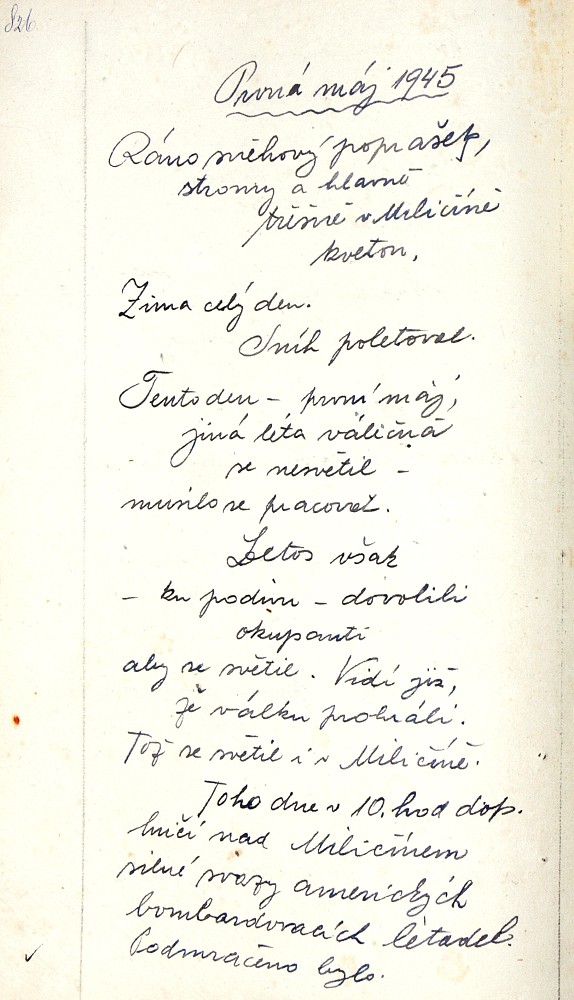 826
Prvná máj 1945
Ráno sněhový poprašek,
stromy a hlavně
třešně v Miličíně
kvetou.
Zima celý den.
Sníh poletoval.
Tento den - první máj,
jiná léta válečná
se nesvětil -
musilo se pracovat.
Letos však
- ku podivu - dovolili
okupanti
aby se světil. Vidí již,
že válku prohráli.
Tož se světil i v Miličíně.
Toho dne v 10. hod dop.
hučí nad Miličínem
silné svazy amerických
bombardovacích létadel.
Podmračeno bylo.